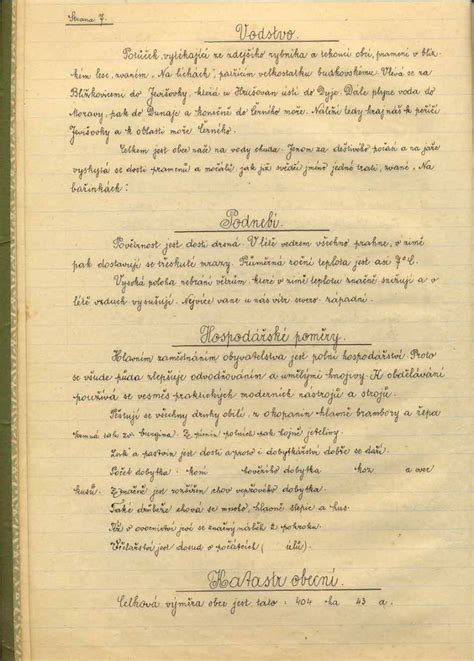 Strana 7.
Vodstvo.
Potůček, vytékající ze zdejšího rybníka a tekoucí obcí, pramení v blíz-
kém lese, zvaném „Na lichách", patřícím velkostatku budkovskému. Vlévá se za
Blížkovicemi do Jevišovky, která u Hrušovan ústí do Dyje. Dále plyne voda do
Moravy, pak do Dunaje a konečně do Černého moře. Náleží tedy krajina k poříčí
Jevišovky a k oblasti moře Černého.
Celkem jest obec naší na vody chudá. Jenom za deštivého počasí a na jaře
vyskytá se dosti pramenů a močálů, jak již svědčí jméno jedné trati, zvané „Na
bařinkách".
Podnebí.
Povětrnost jest dosti drsná. V létě vedrem všechno prahne, v zimě
pak dostavují se třeskuté mrazy. Průměrná roční teplota jest asi 7° C.
Vysoká poloha nebrání větrům, které v zimě teplotu značně snižují a v
létě vzduch vysušují. Nejvíce vane u nás vítr severo západní.
Hospodářské poměry.
Hlavním zaměstnáním obyvatelstva jest polní hospodářství. Proto
se všude půda zlepšuje odvodňováním a umělými hnojivy. K obdělávání
používá se vesměs praktických moderních nástrojů a strojů.
Pěstují se všechny druhy obilí, z okopanin hlavně brambory a řepa
krmná zv. burgina. Z pícnin polních pak hojně jeteliny.
Luk a pastvin jest dosti a proto i dobytkářství dobře se daří.
Počet dobytka: koní hovězího dobytka koz a ovec
kusů. Značně jest rozšířen chov vepřového dobytka.
Také drůbeže chová se mnoho, hlavně slepic a hus.
Též v ovocnictví jeví se značný náběh k pokroku.
Včelařství jest dosud v počátcích ( úlů).
Katastr obecní.
Celková výměra obce jest tato: 404 ha 43 a.